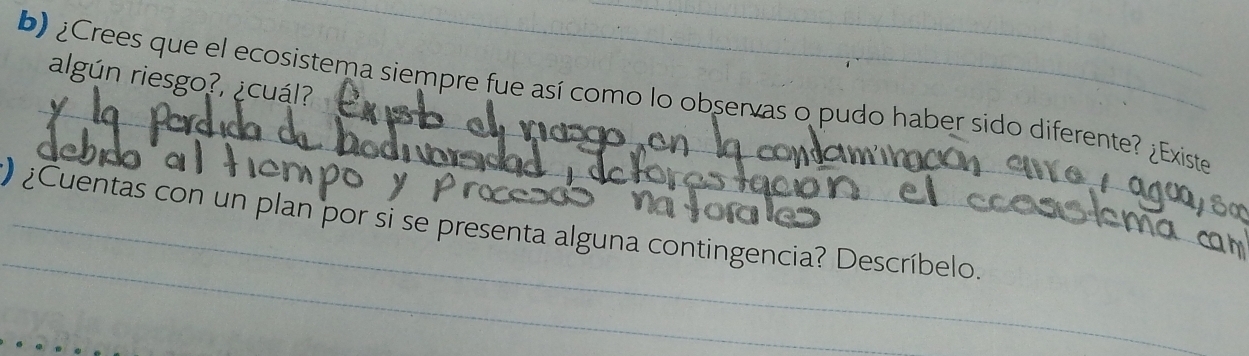 b) ¿Crees que el ecosistema siempre fue así como lo observas o pudo haber sido diferente? ¿Existe
algún riesgo?, ¿cuál? Existe el riesgo, en la condaminacon aire, agua, so
y la perdida de biodiversidad, deforestacion el ecosistema cam
debido al tiempo y procesos naturales
) ¿Cuentas con un plan por si se presenta alguna contingencia? Descríbelo.